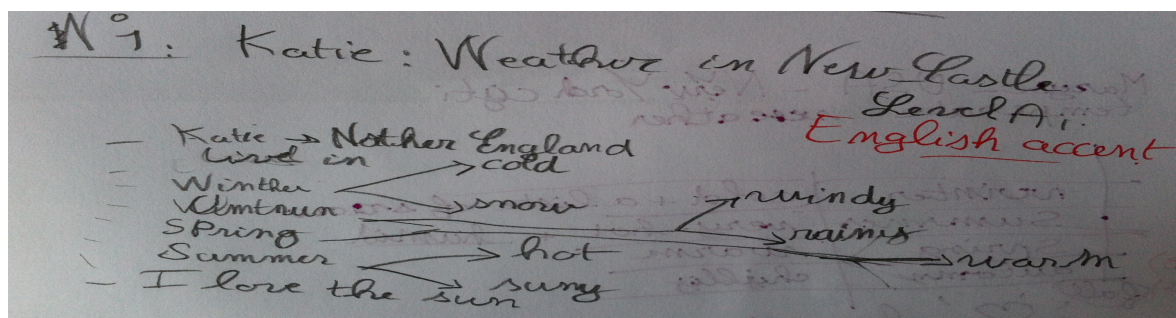 N°1: Katie: Weather in New Castle.
Level A1.
English accent
— Katie → Nother England
live in
— Winther → cold
→ snow
— Amtnun → windy
→ rainis
— Spring → warm
— Summer → hot
→ suny
— I love the sun